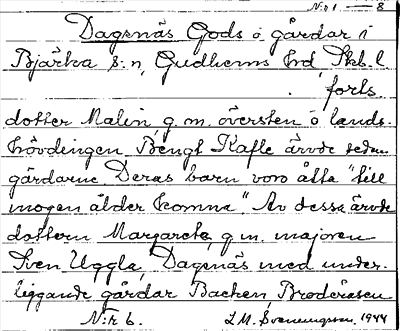 N:r 1 — 8
Dagsnäs Gods o gårdar i
Bjärka s:n, Gudhems hrd Skb. l
forts.
dotter Malin g. m. översten o lands-
hövdingen Bengt Kafle ärvde sedan
gårdarne Deras barn voro åtta "till
mogen ålder komna". Av dessa ärvde
dottern Margareta g. m. majoren
Sven Uggla, Dagsnäs med under-
liggande gårdar Backen, Broderåsen
N:r 6. L. M. Svenungsson, 1944